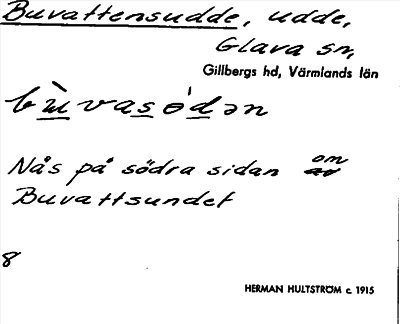 Buvattensudde, udde,
Glava sn,
Gillbergs hd, Värmlands län
bùvasódən
Nås på södra sidan om
Buvattsundet
8
HERMAN HULTSTRÖM c. 1915